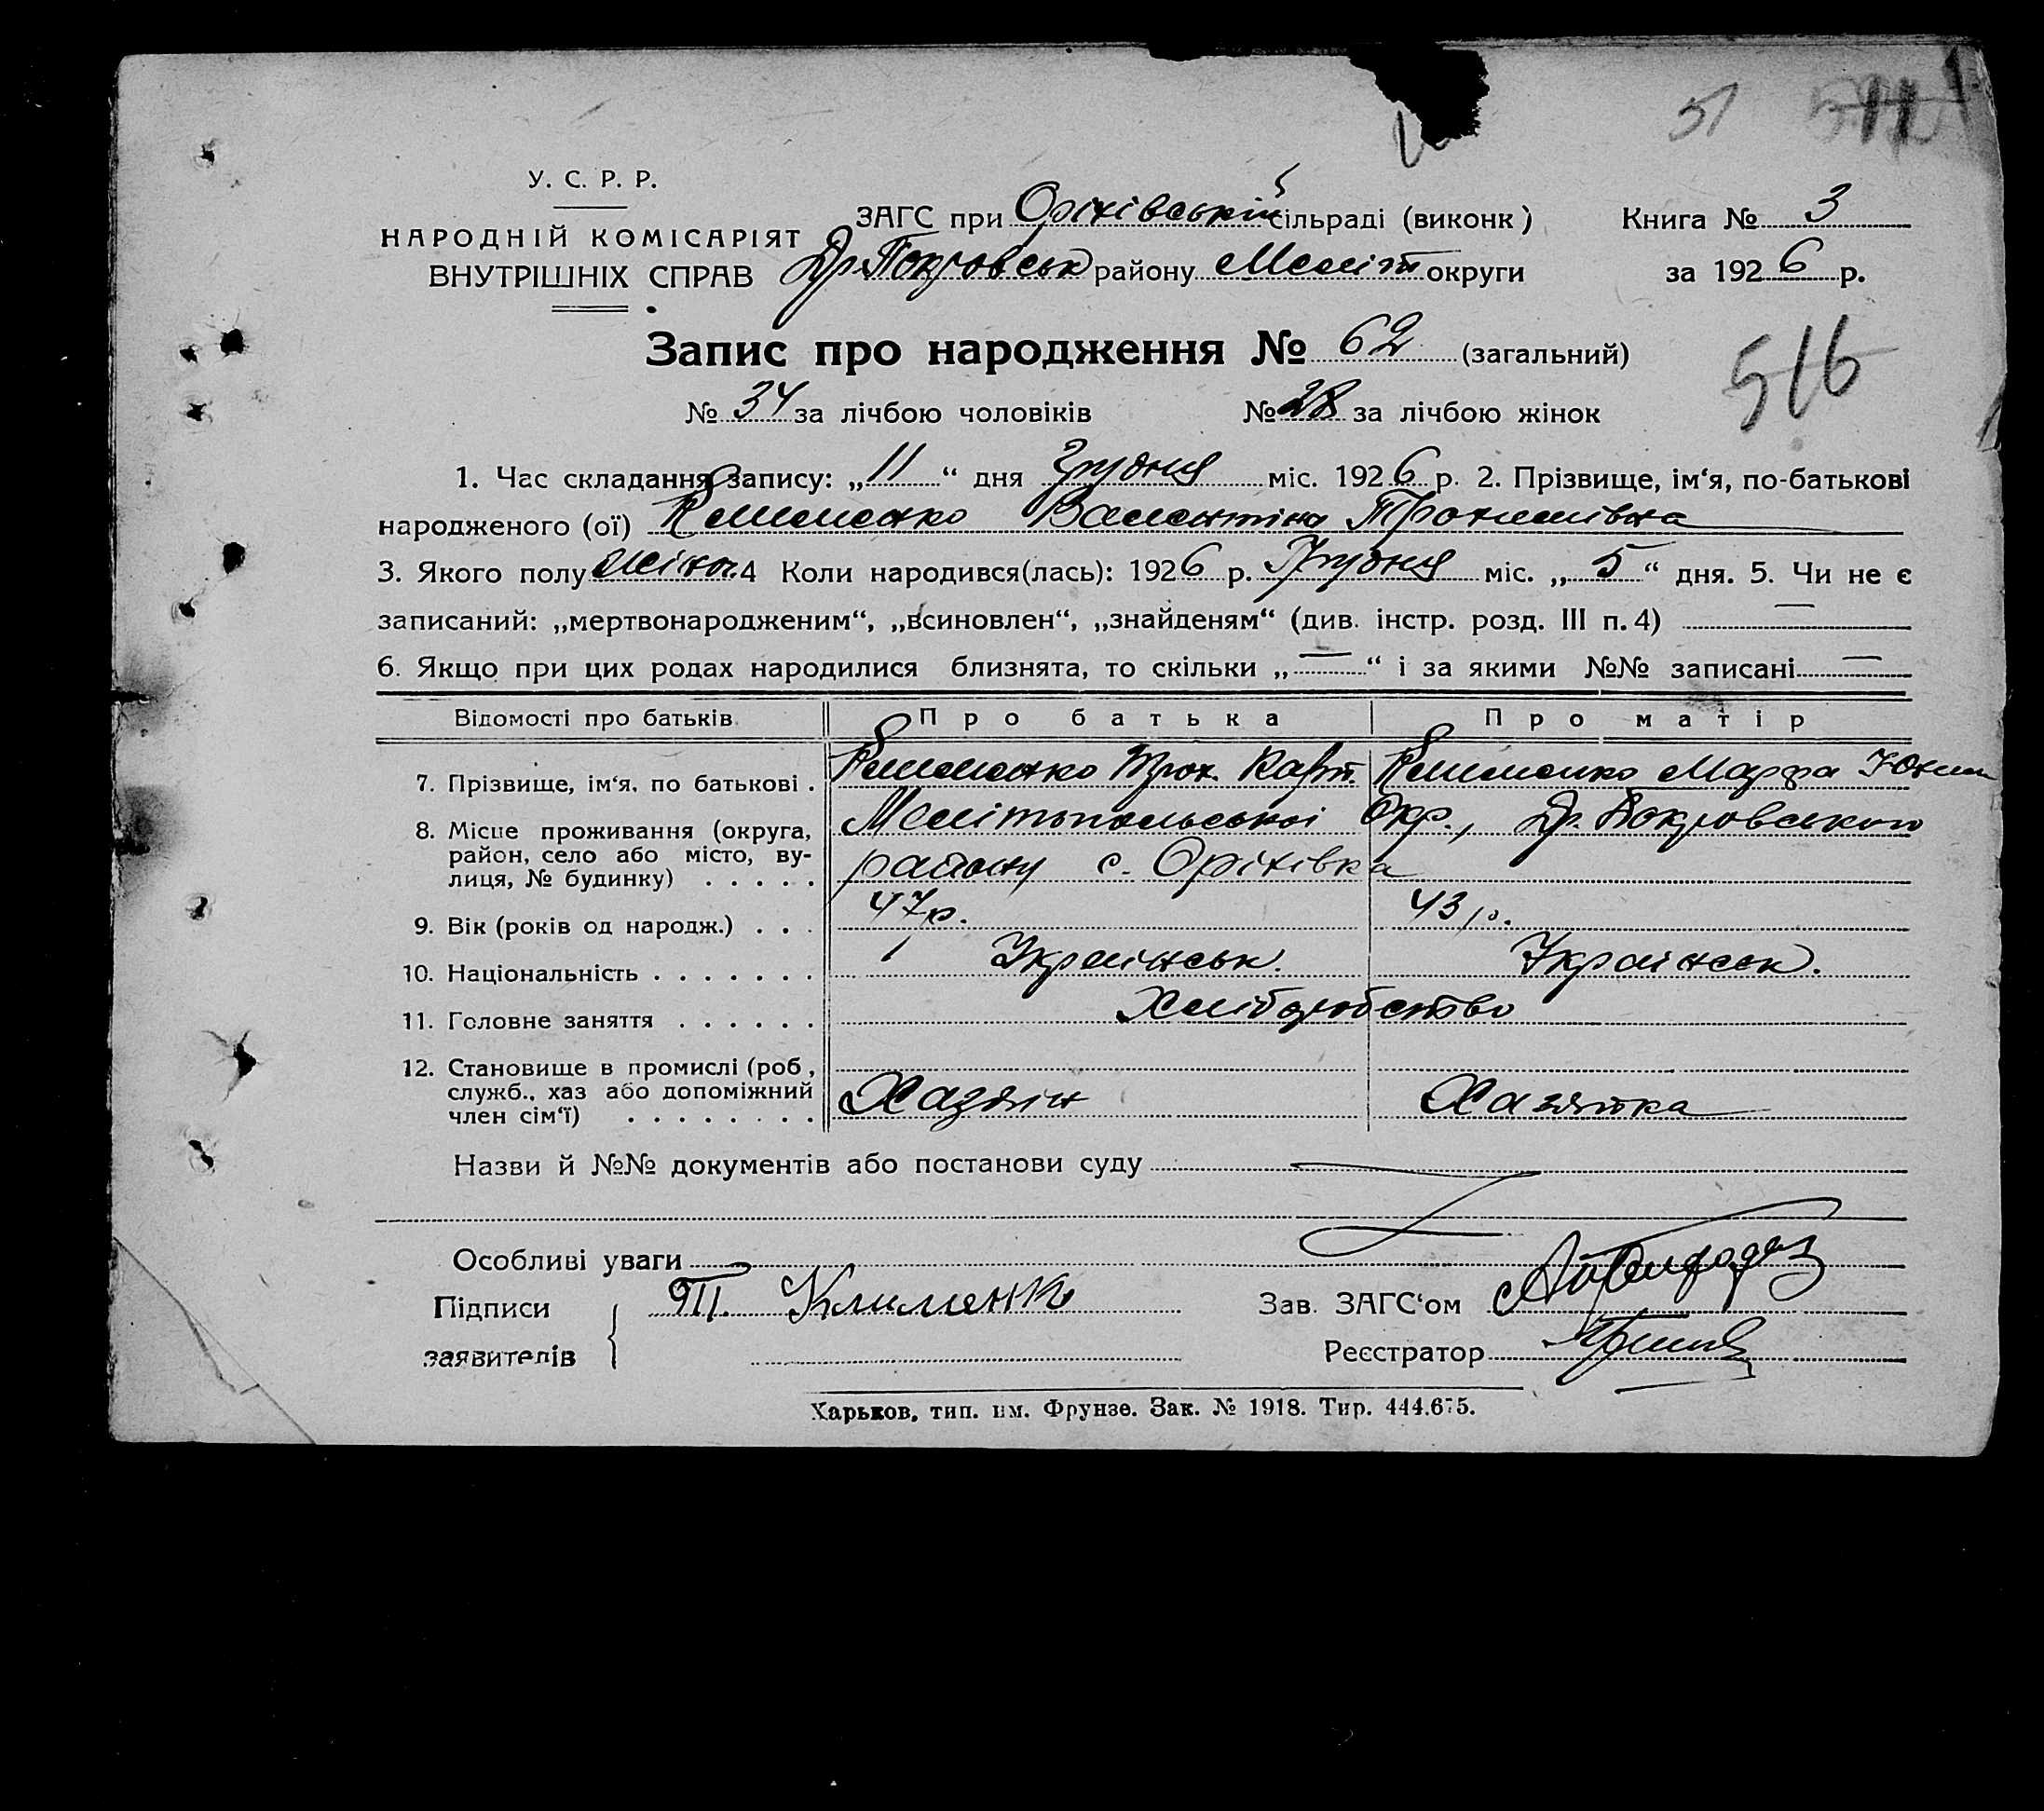 51
У. С. Р. Р.
НАРОДНІЙ КОМІСАРІЯТ
ВНУТРІШНІХ СПРАВ
ЗАГС при Оріхівській сільраді (виконк) Книга № 3
Др.Покровськ району Меліт округи за 1926 р.
Запис про народження № 62 (загальний)
516
№ 34 за лічбою чоловіків № 28 за лічбою жінок
1. Час складання запису: „11“ дня Грудня міс. 1926 р. 2. Прізвище, ім‘я, по-батькові
народженого (ої) Клименко Валентіна Трохимівна
3. Якого полу жіноч. 4 Коли народився(лась): 1926 р. Грудня міс. „5“ дня. 5. Чи не є
записаний: „мертвонародженим“, „всиновлен“, „знайденям“ (див. інстр. розд. III п. 4) —
6. Якщо при цих родах народилися близнята, то скільки „—“ і за якими №№ записані —
Відомості про батьків Про батька Про матір
7. Прізвище, ім‘я, по батькові . Клименко Трох. Карп. Клименко Марфа Юхим
8. Місце проживання (округа, район, село або місто, вулиця, № будинку) . . . . . Мелітопольської Окр., Др. Покровського
району с. Оріхівка
9. Вік (років од народж.) . . . 47 р. 43 р.
10. Національність . . . . . . . Українськ. Українськ.
11. Головне заняття . . . . . . Хліборобство
12. Становище в промислі (роб, служб., хаз або допоміжний член сім‘ї) . . . . . . . . Хазяїн Хазяйка
Назви й №№ документів або постанови суду
Особливі уваги
Підписи Т. Клименко Зав. ЗАГС‘ом
заявителів Реєстратор
Харьков, тип. им. Фрунзе. Зак. № 1918. Тир. 444.675.